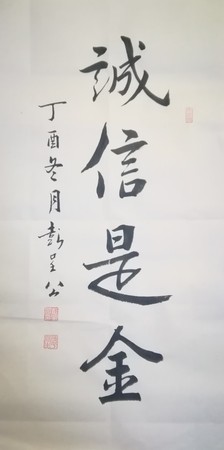 誠信是金
丁酉冬月彭